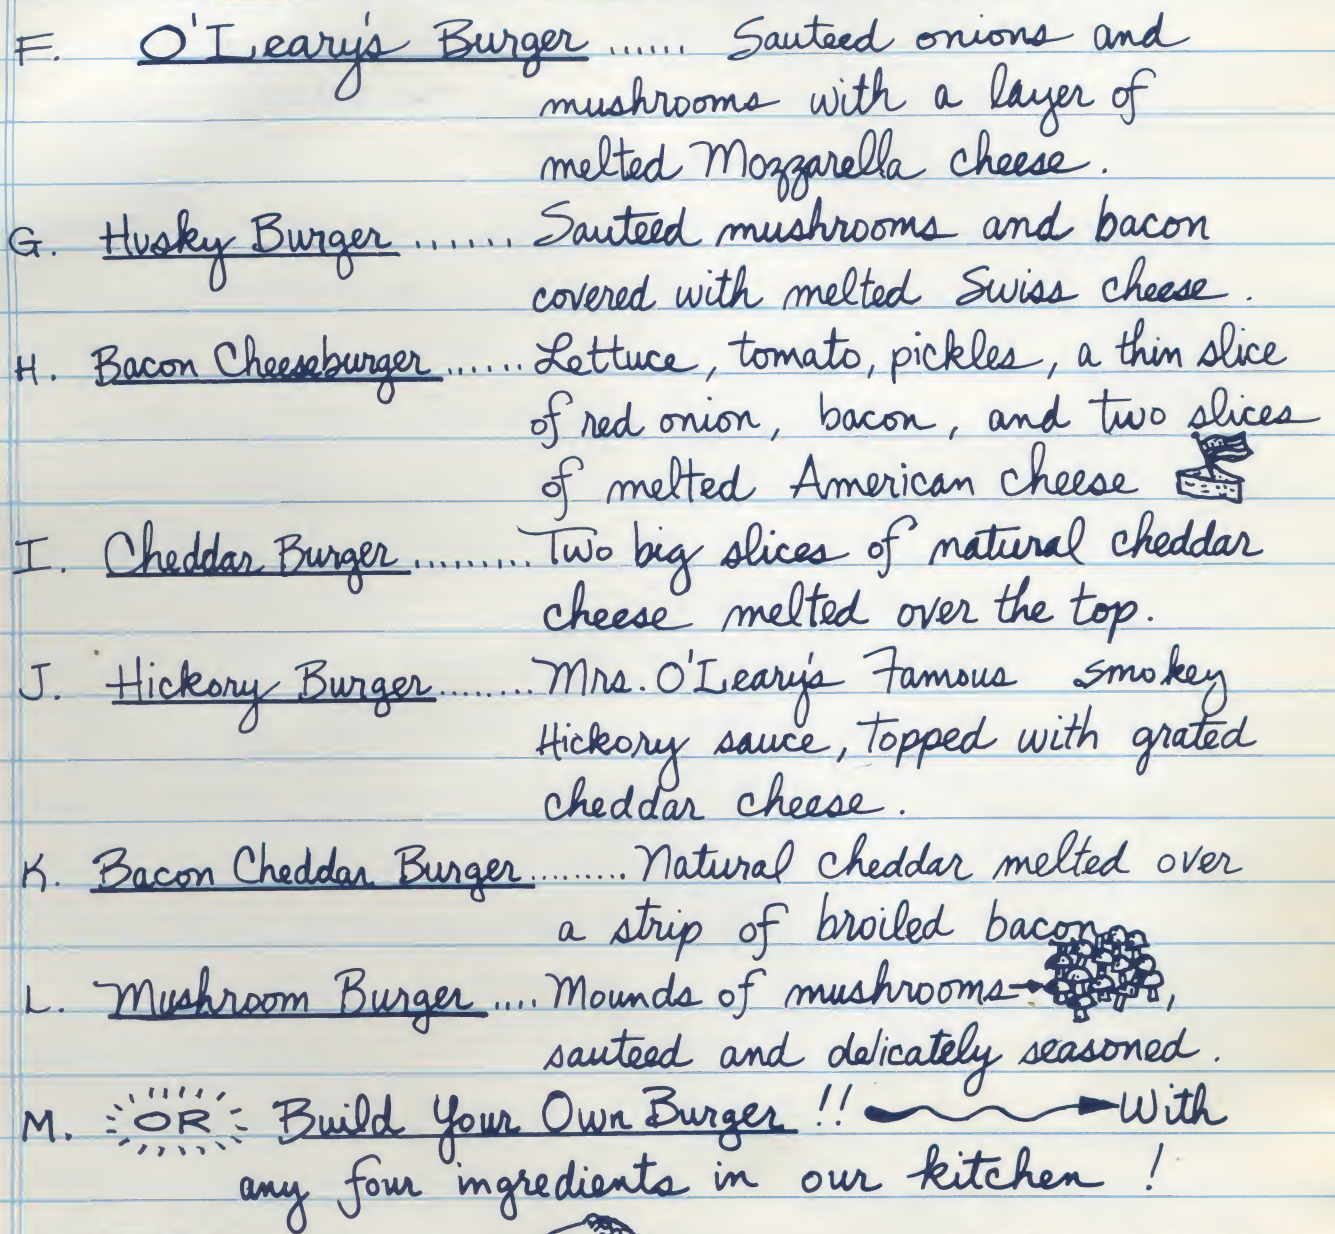 F. O'Leary's Burger ...... Sauteed onions and
mushrooms with a layer of
melted Mozzarella cheese.
G. Husky Burger ...... Sauteed mushrooms and bacon
covered with melted Swiss cheese.
H. Bacon Cheeseburger ...... Lettuce, tomato, pickles, a thin slice
of red onion, bacon, and two slices
of melted American cheese
I. Cheddar Burger ......... Two big slices of natural cheddar
cheese melted over the top.
J. Hickory Burger ........ Mrs. O'Leary's Famous smokey
Hickory sauce, topped with grated
cheddar cheese.
K. Bacon Cheddar Burger ......... Natural cheddar melted over
a strip of broiled bacon
L. Mushroom Burger .... Mounds of mushrooms ,
sauteed and delicately seasoned.
M. OR Build Your Own Burger !! With
any four ingredients in our kitchen !